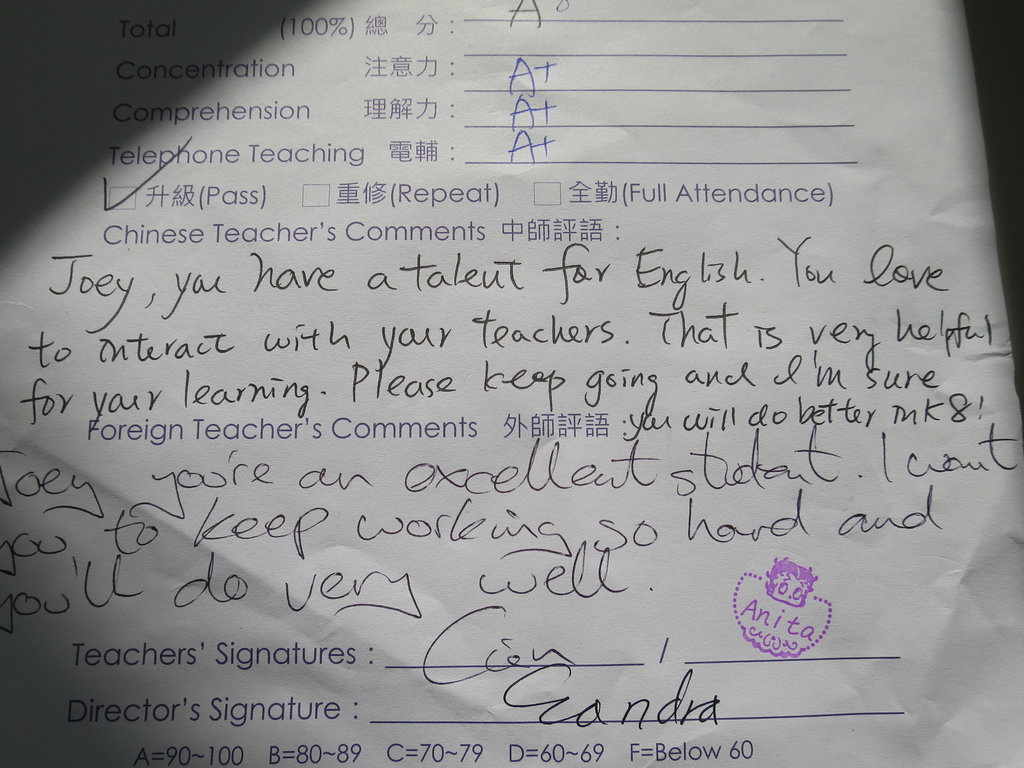 Total (100%) 總 分 : A
Concentration 注意力 : A+
Comprehension 理解力 : A+
Telephone Teaching 電輔 : A+
升級(Pass) 重修(Repeat) 全勤(Full Attendance)
Chinese Teacher's Comments 中師評語 :
Joey, you have a talent for English. You love
to interact with your teachers. That is very helpful
for your learning. Please keep going and I'm sure
you will do better in K8!
Foreign Teacher's Comments 外師評語 :
Joey you're an excellent student. I want
you to keep working so hard and
you'll do very well.
Teachers' Signatures : Cian / Anita
Director's Signature : Sandra
A=90~100 B=80~89 C=70~79 D=60~69 F=Below 60